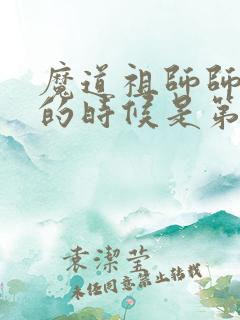 魔道祖师师
的时候是第
袁潔莹
未经同意禁止转载